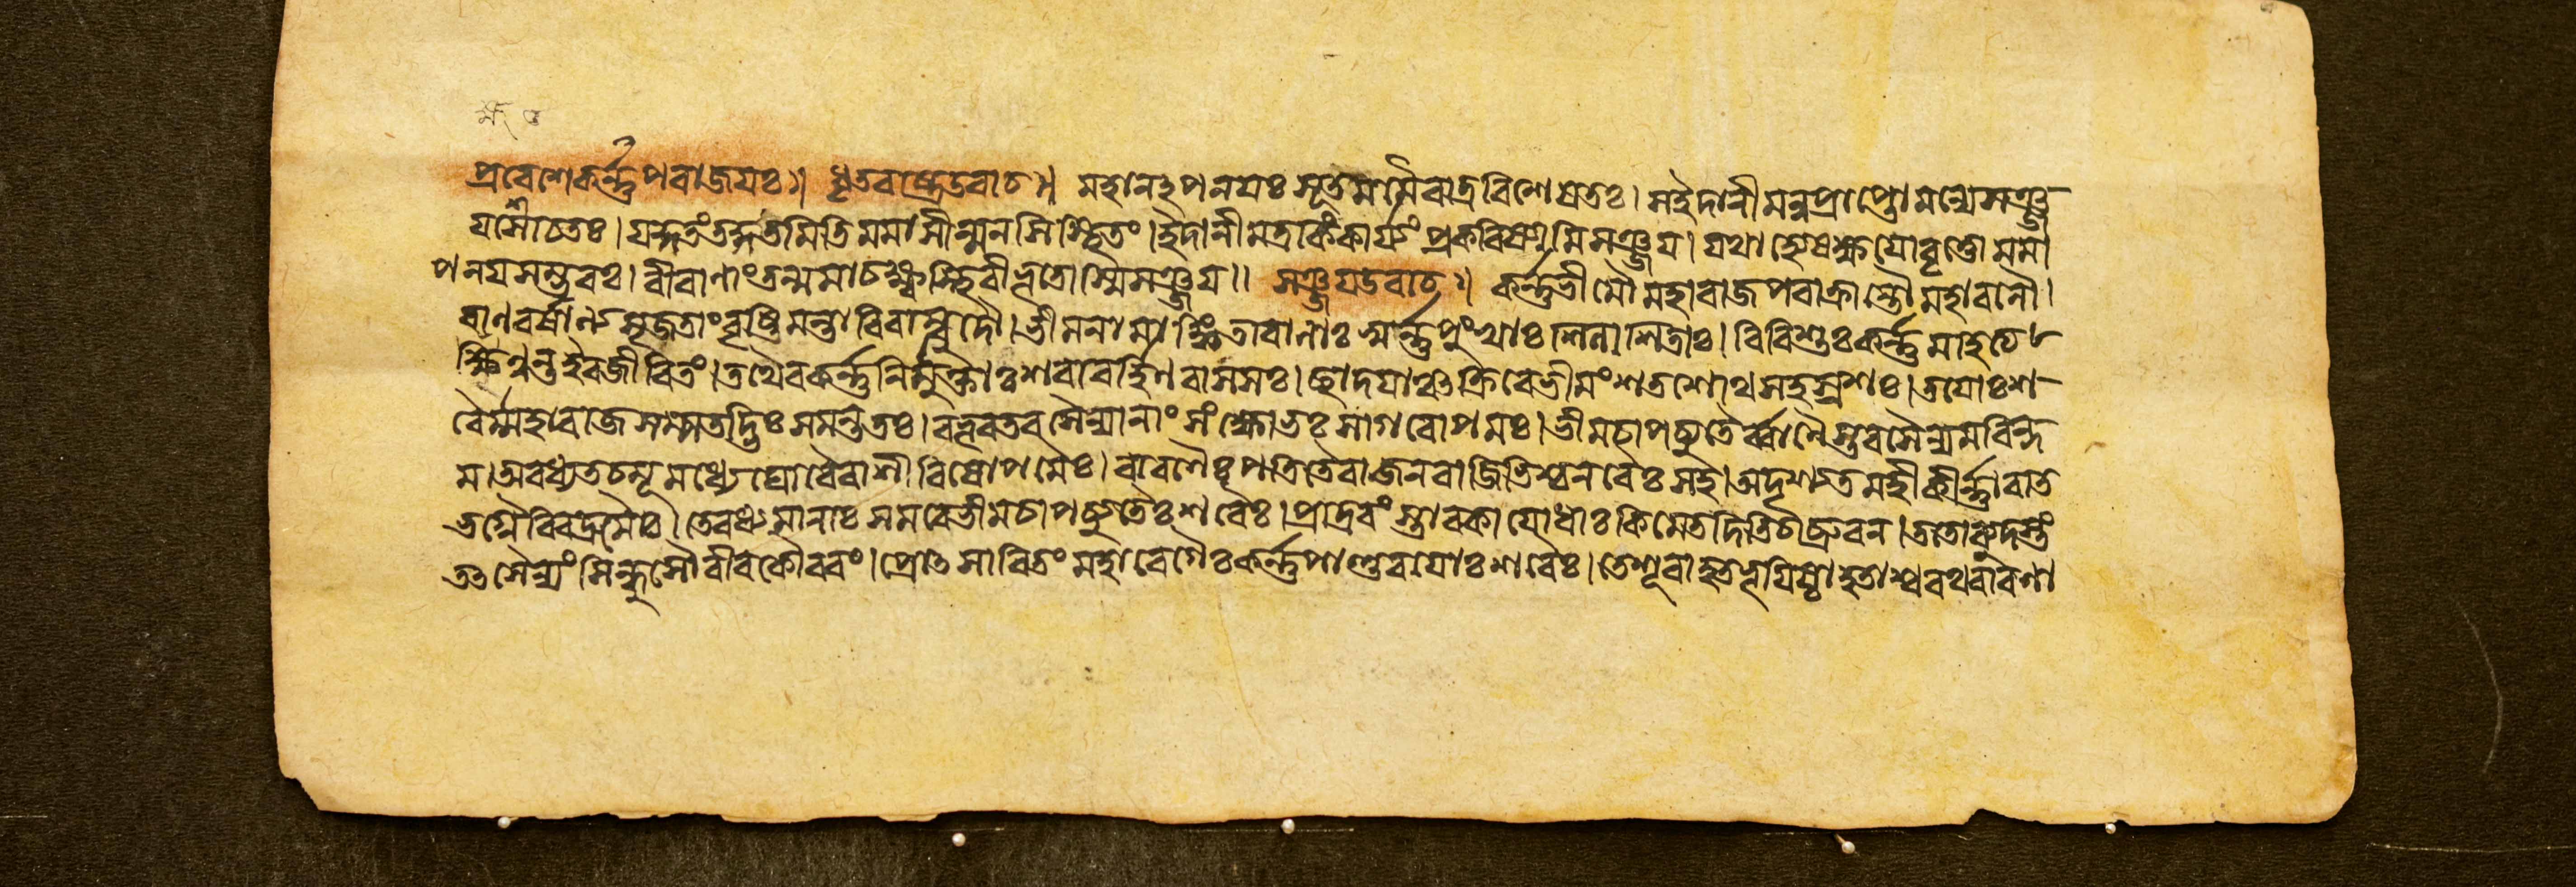 প্রবেশেকর্ন্নপরাজযঃ॥ ধৃতরাষ্ট্রউবাচ॥ মহানঽপনযঃ সূতমমৈবাত্রবিশেষতঃ। সইদানীমনুপ্রাপ্তোমন্যেসঞ্জ
যশোচতঃ। যদ্গতংতদ্গতমিতিমমাসীন্মনসিস্থিতং। ইদানীমত্রকিংকার্য্যংপ্রকরিষ্যামিসঞ্জয। যথাহ্যেষক্ষযোবৃত্তোমমা
পনযসম্ভবঃ। বীরাণাংতন্মমাচক্ষ্বস্থিরীভূতোস্মিসঞ্জয॥ সঞ্জযউবাচ॥ কর্ন্নভীমৌমহারাজপরাক্রান্তৌমহাবনৌ।
বাণবর্ষাণ্যসৃজতাংবৃষ্টিমন্তাবিবাম্বুদৌ। ভীমনামাঙ্কিতাবানাঃ স্বর্ন্নপুংখাঃ শিলাশিতাঃ। বিবিশুঃকর্ন্নমাহবে
ছিন্দন্তইবজীবিতং। তথৈবকর্ন্ননির্মুক্তাঃশরাবর্হিণবাসসঃ। ছাদযাঞ্চক্রিরেভীমংশতশোথসহস্রশঃ। তযোঃশ
রৈর্ম্মহারাজসম্পতদ্ভিঃসমন্ততঃ। বভূবতবসৈন্যানাংসংক্ষোভঃসাগরোপমঃ। ভীমচাপচ্যুতৈর্ব্বাণৈস্তবসৈন্যমরিন্দ
ম। অবধ্যতচমূমধ্যেঘোরৈরাশীবিষোপমৈঃ। বারণৈঃপতিতৈরাজনবাজিভিশ্চনরৈঃসহ। অদৃশ্যতমহীকীর্ন্নাবাত
ভগ্নৈরিবদ্রুমৈঃ। তেবধ্যমানাঃসমরেভীমচাপচ্যুতৈঃশরৈঃ। প্রাদ্রবংস্তাবকাযোধাঃকিমেতদিতিচাব্রুবন। ততোব্যুদস্তং
তত্সৈন্যংসিন্ধুসৌবীরকৌরবং। প্রোত্সারিতংমহাবেগৈঃকর্ন্নপাণ্ডবযোঃশরৈঃ। তেশূরাহতভূযিষ্ঠাহতাশ্বরথবারণা